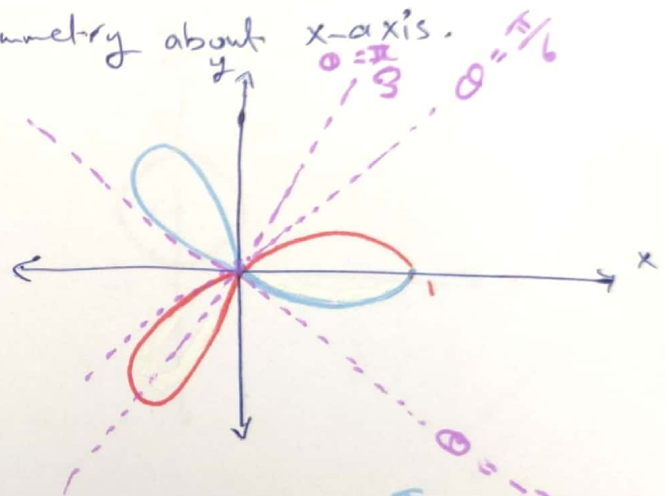 mmetry about x-axis.
y
θ = π/3
θ = π/6
x
1
θ =